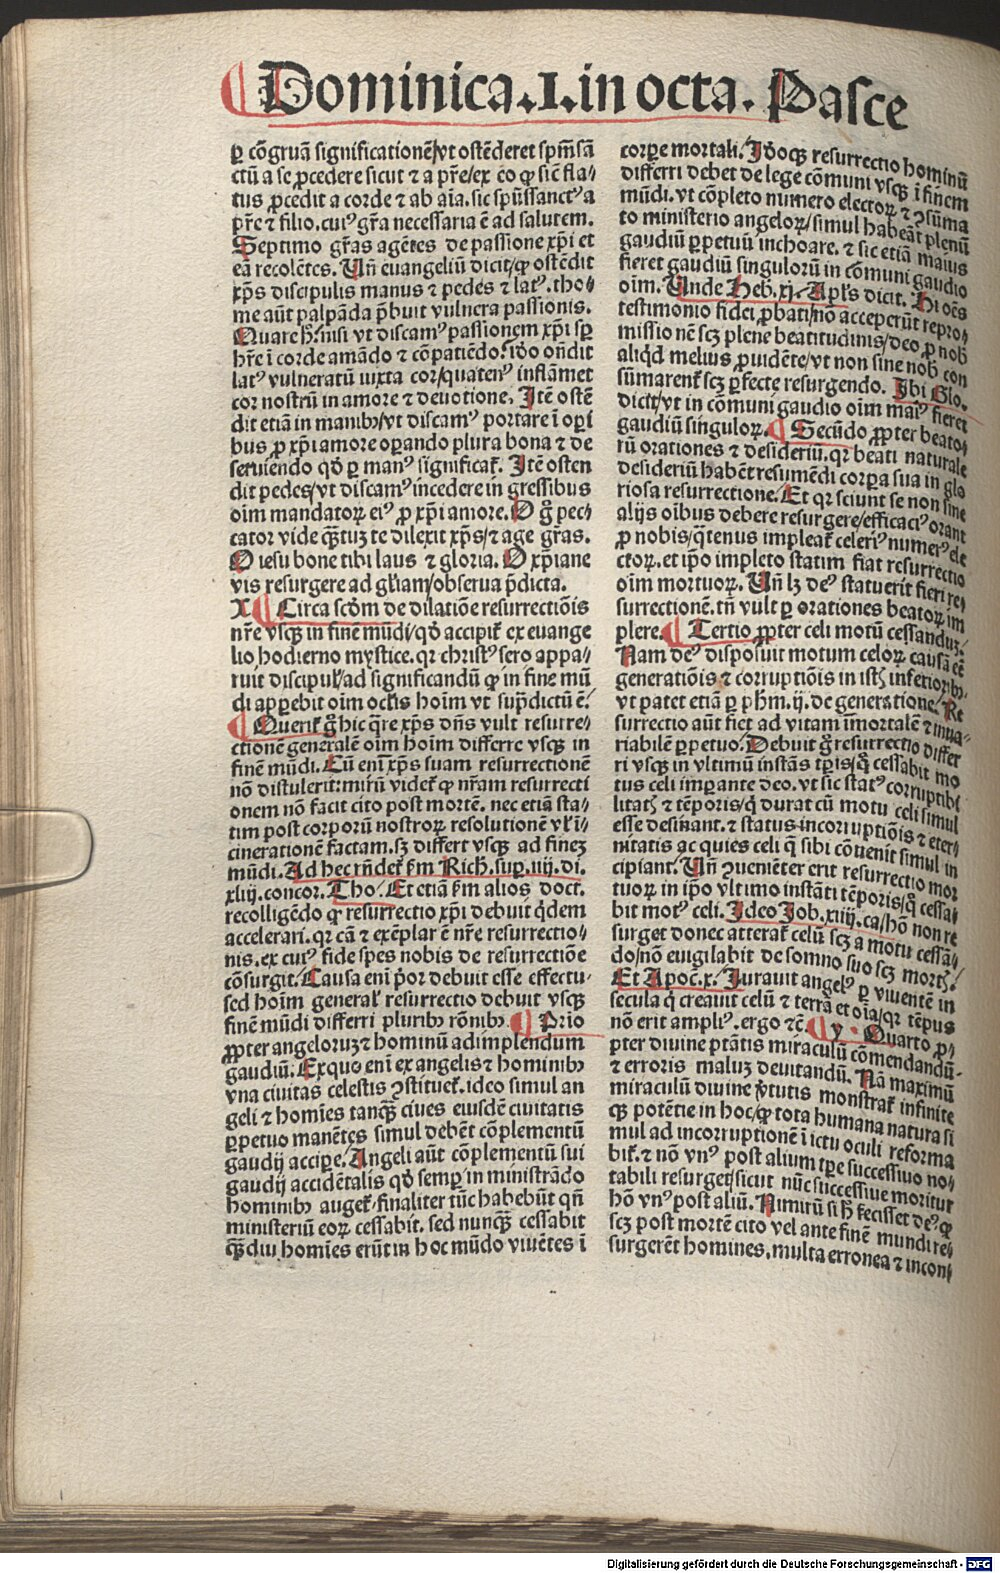 Dominica.I.in octa. Pasce
ꝑ cōgruā significationē/vt ostēderet spm̄sā
ctū a se ꝓcedere sicut ⁊ a pr̄e/ex eo ꝙ sic̄ fla/
tus ꝓcedit a corde ⁊ ab aīa. sic spūssanctꝰ a
pr̄e ⁊ filio. cuiꝰ gr̄a necessaria ē ad salutem.
Septimo gr̄as agētes de passione xp̄i et
eā recolētes. Vn̄ euangeliū dicit/ꝙ ostēdit
xp̄s discipulis manus ⁊ pedes ⁊ latꝰ. tho/
me aūt palpāda p̄buit vulnera passionis.
Quare h̄. nisi vt discamꝰ passionem xp̄i sꝑ
hr̄e ī corde amādo ⁊ cōpatiēdo. iō ondit
latꝰ vulneratū iuxta cor/quatenꝰ inflāmet
cor nostrū in amore ⁊ deuotione. Itē ostē
dit etiā in manibꝰ/vt discamꝰ portare ī oꝑi
bus ꝓ xp̄i amore oꝑando plura bona ⁊ de
seruiendo qd̄ ꝑ manꝰ significat̄. Itē osten
dit pedes/vt discamꝰ incedere in gressibus
oīm mandatoꝝ eiꝰ ꝓ xp̄i amore. O g̊ pec/
cator vide qͣꝫtuꝫ te dilexit xp̄s/⁊ age gr̄as.
O iesu bone tibi laus ⁊ gloria. O xp̄iane
vis resurgere ad gl̄iam/obserua p̄dicta.
X Circa scd̄m de dilatiōe resurrectiōis
nr̄e vsqꝫ in finē mūdi/qd̄ accipit̄ ex euange
lio hodierno mystice. qꝛ christꝰ sero appa/
ruit discipul̄/ad significandū ꝙ in fine mū
di apꝑebit oīm oclīs hoīm vt sup̄dictū ē.
Querit̄ g̊ hic q̄re xp̄s dn̄s vult resurre/
ctionē generalē oīm hoīm differre vsqꝫ in
finē mūdi. Cū enī xp̄s suam resurrectionē
nō distulerit: mirū videt̄ ꝙ nr̄am resurrecti
onem nō facit cito post mortē. nec etiā sta/
tim post corporū nostroꝝ resolutionē vl̄ ī/
cinerationē factam. sꝫ differt vsqꝫ ad fineꝫ
mūdi. Ad hec rn̄det̄ fm Rich. sup. iiij. di.
xliij. concor. Tho. Et etiā fm alios doct.
recolligēdo ꝙ resurrectio xp̄i debuit q̇dem
accelerari. qꝛ cā ⁊ exēplar ē nr̄e resurrectio/
nis. ex cuiꝰ fide spes nobis de resurrectiōe
cōsurgit. Causa enī p̄or debuit esse effectu.
sed hoīm general̄ resurrectio debuit vsqꝫ
finē mūdi differri pluribꝫ rōnibꝫ. Prīo
ꝓpter angeloruꝫ ⁊ hominū adimplendum
gaudiū. Ex quo enī ex angelis ⁊ hominibꝫ
vna ciuitas celestis ꝯstituet̄. ideo simul an
geli ⁊ homīes tanqͣꝫ ciues eiusdē ciuitatis
ꝑpetuo manētes simul debēt cōplementū
gaudij acciꝑe. Angeli aūt cōplementū sui
gaudij accidētalis qd̄ semꝑ in ministrādo
hominibꝫ auget̄. finaliter tūc habebūt qn̄
ministeriū eoꝝ cessabit. sed nunqͣꝫ cessabit
qͣꝫdiu homīes erūt in hoc mūdo viuētes ī
corꝑe mortali. Idoqꝫ resurrectio hominū
differri debet de lege cōmuni vsqꝫ ī finem
mūdi. vt cōpleto numero electoꝝ ⁊ ꝯsūma
to ministerio angeloꝝ/simul habeāt plenū
gaudiū ꝑpetuū inchoare. ⁊ sic etiā maius
fieret gaudiū singulorū in cōmuni gaudio
oīm. Vnde Heb. xj. Apl̄s dicit. Hi oēs
testimonio fidei ꝓbati/nō acceperūt repro/
missionē scꝫ plene beatitudinis/deo ꝓ nob̄
aliqd̄ melius ꝓuidēte/vt non sine nob̄ con
sūmarent̄ scꝫ ꝑfecte resurgendo. Ibi Glo.
dicit/vt in cōmuni gaudio oīm maiꝰ fieret
gaudiū singuloꝝ. Secūdo ꝓpter beato/
rū orationes ⁊ desideriū. qꝛ beati naturale
desideriū habēt resumēdi corꝑa sua in glo
riosa resurrectione. Et qꝛ sciunt se non sine
alijs oībus debere resurgere/efficaciꝰ orant
ꝓ nobis/q̄tenus impleat̄ celeriꝰ numerꝰ ele
ctoꝝ. et ip̄o impleto statim fiat resurrectio
oīm mortuoꝝ. Vn̄ lꝫ deꝰ statuerit fieri re/
surrectionē. tn̄ vult ꝑ orationes beatoꝝ im
plere. Tertio ꝓpter celi motū cessanduꝫ.
Nam deꝰ disposuit motum celoꝝ causā eē
generatiōis ⁊ corruptiōis in istꝭ inferioribꝫ.
vt patet etiā ꝑ phm. ij. de generatione. Re
surrectio aūt fiet ad vitam īmortalē ⁊ inua/
riabilē ꝑpetuo. Debuit g̊ resurrectio differ
ri vsqꝫ in vltimū instās tꝑis/q̊ cessabit mo
tus celi imꝑante deo. vt sic statꝰ corruptibi
litatꝭ ⁊ tēporis/q̇ durat cū motu celi simul
esse desinant. ⁊ status incorruptiōis ⁊ eter/
nitatis ac quies celi q̄ sibi cōuenit simul in
cipiant. Vn̄ ꝯueniēter erit resurrectio mor
tuoꝝ in ip̄o vltimo instāti tēporis/q̊ cessa/
bit motꝰ celi. Ideo Iob. xiiij. ca/hō non re
surget donec atterat̄ celū scꝫ a motu cessā/
do/nō euigilabit de somno suo scꝫ mortꝭ.
Et Apoc̄. x. Iurauit angelꝰ ꝑ viuentē in
secula q̇ creauit celū ⁊ terrā et oīa/qꝛ tēpus
nō erit ampliꝰ. ergo ⁊c̄. y Quarto ꝓ/
pter diuine ptātis miraculū cōmendandū.
⁊ erroris maluꝫ deuitandū. Nā maximū
miraculū diuine v̓tutis monstrat̄ infinite
qꝫ potētie in hoc/ꝙ tota humana natura si
mul ad incorruptionē ī ictu oculi reforma
bit̄. ⁊ nō vnꝰ post alium tꝑe successiuo no/
tabili resurget/sicut nūc successiue moritur
hō vnꝰ post aliū. Nimirū si h̄ fecisset deꝰ ꝙ
scꝫ post mortē cito vel ante finē mundi re/
surgerēt homines. multa erronea ⁊ incon/
Digitalisierung gefördert durch die Deutsche Forschungsgemeinschaft - DFG